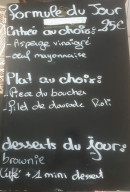 formule du Jour
25€
Entrée au choix:
- Asperge vinaigré
- oeuf mayonnaise
Plat au choix:
- Piece du boucher
- filet de daurade Roti
desserts du jour:
brownie
Café + 1 mini dessert